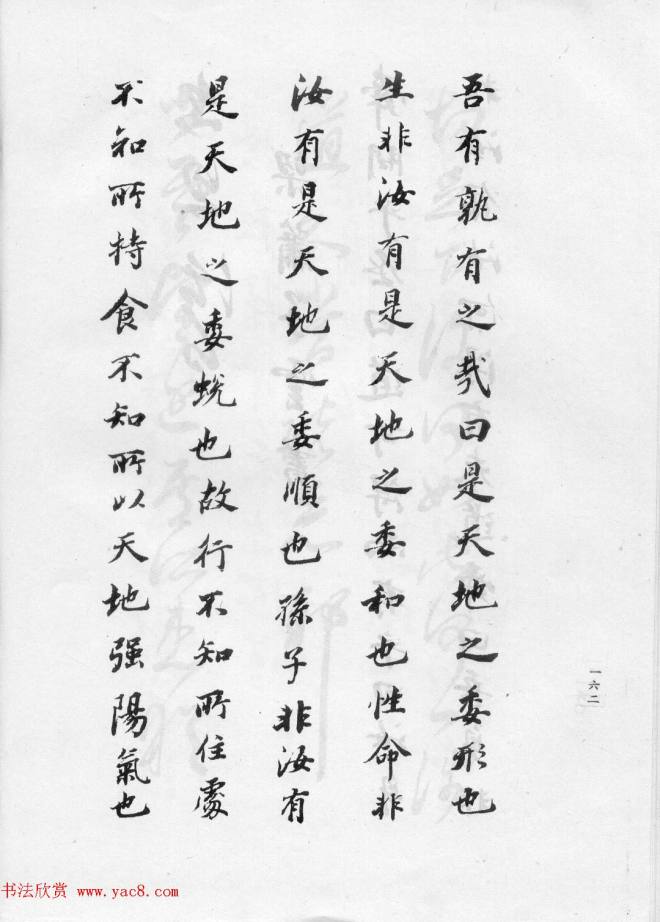 吾有孰有之哉曰是天地之委形也
生非汝有是天地之委和也性命非
汝有是天地之委順也孫子非汝有
是天地之委蛻也故行不知所住處
不知所持食不知所以天地强陽氣也
一六二
书法欣赏 www.yac8.com